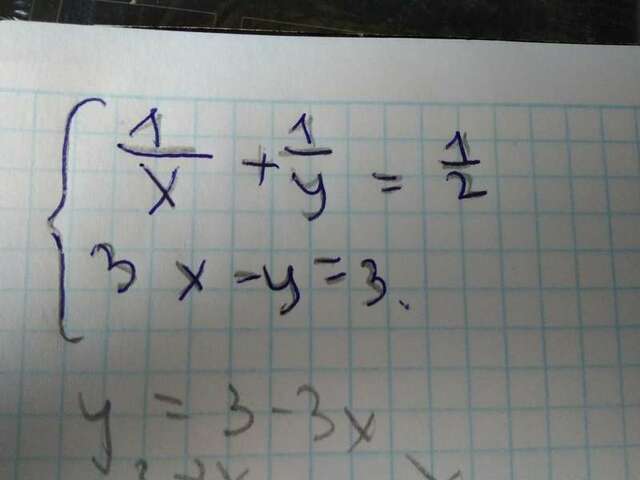 1/x + 1/y = 1/2
3x - y = 3.
y = 3 - 3x